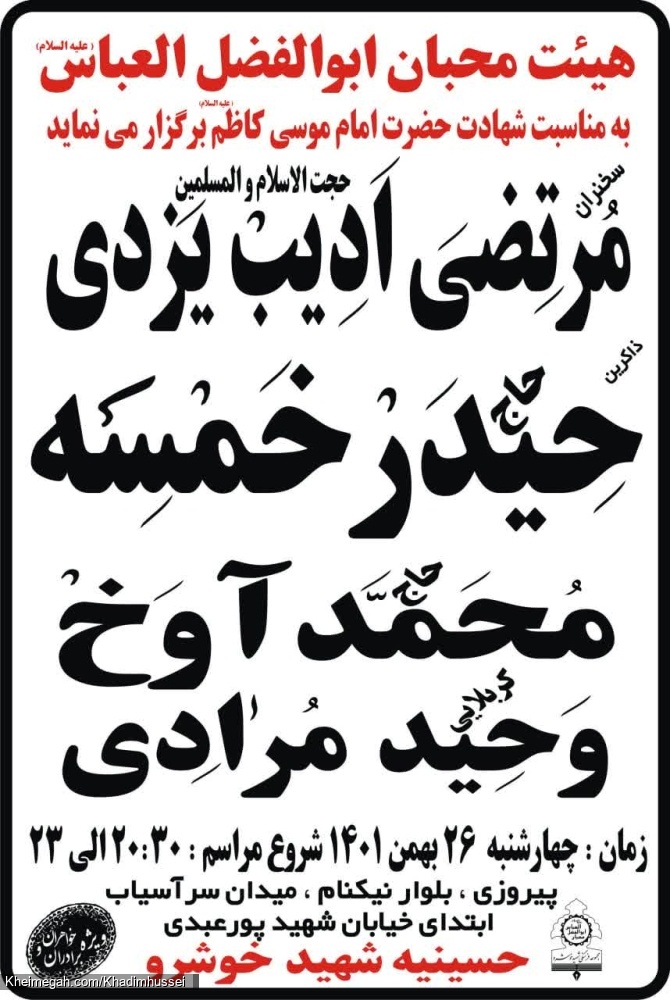 هیئت محبان ابوالفضل العباس (علیه السلام)
به مناسبت شهادت حضرت امام موسی کاظم (علیه السلام) برگزار می نماید
سخنران
حجت الاسلام و المسلمین
مُرتِضیَ اَدِیبْ یَزدی
ذاکرین
حاج
حِیْدَرْ خَمْسِه
حاج
مُحَمَّد آوَخْ
کربلایی
وَحِیْد مُرادِی
زمان : چهارشنبه ۲۶ بهمن ۱۴۰۱ شروع مراسم : ۲۰:۳۰ الی ۲۳
پیروزی ، بلوار نیکنام ، میدان سرآسیاب
ابتدای خیابان شهید پورعبدی
حسینیه شهید خوشرو
ویژه خواهران و برادران
Kheimegah.com/Khadimhussei